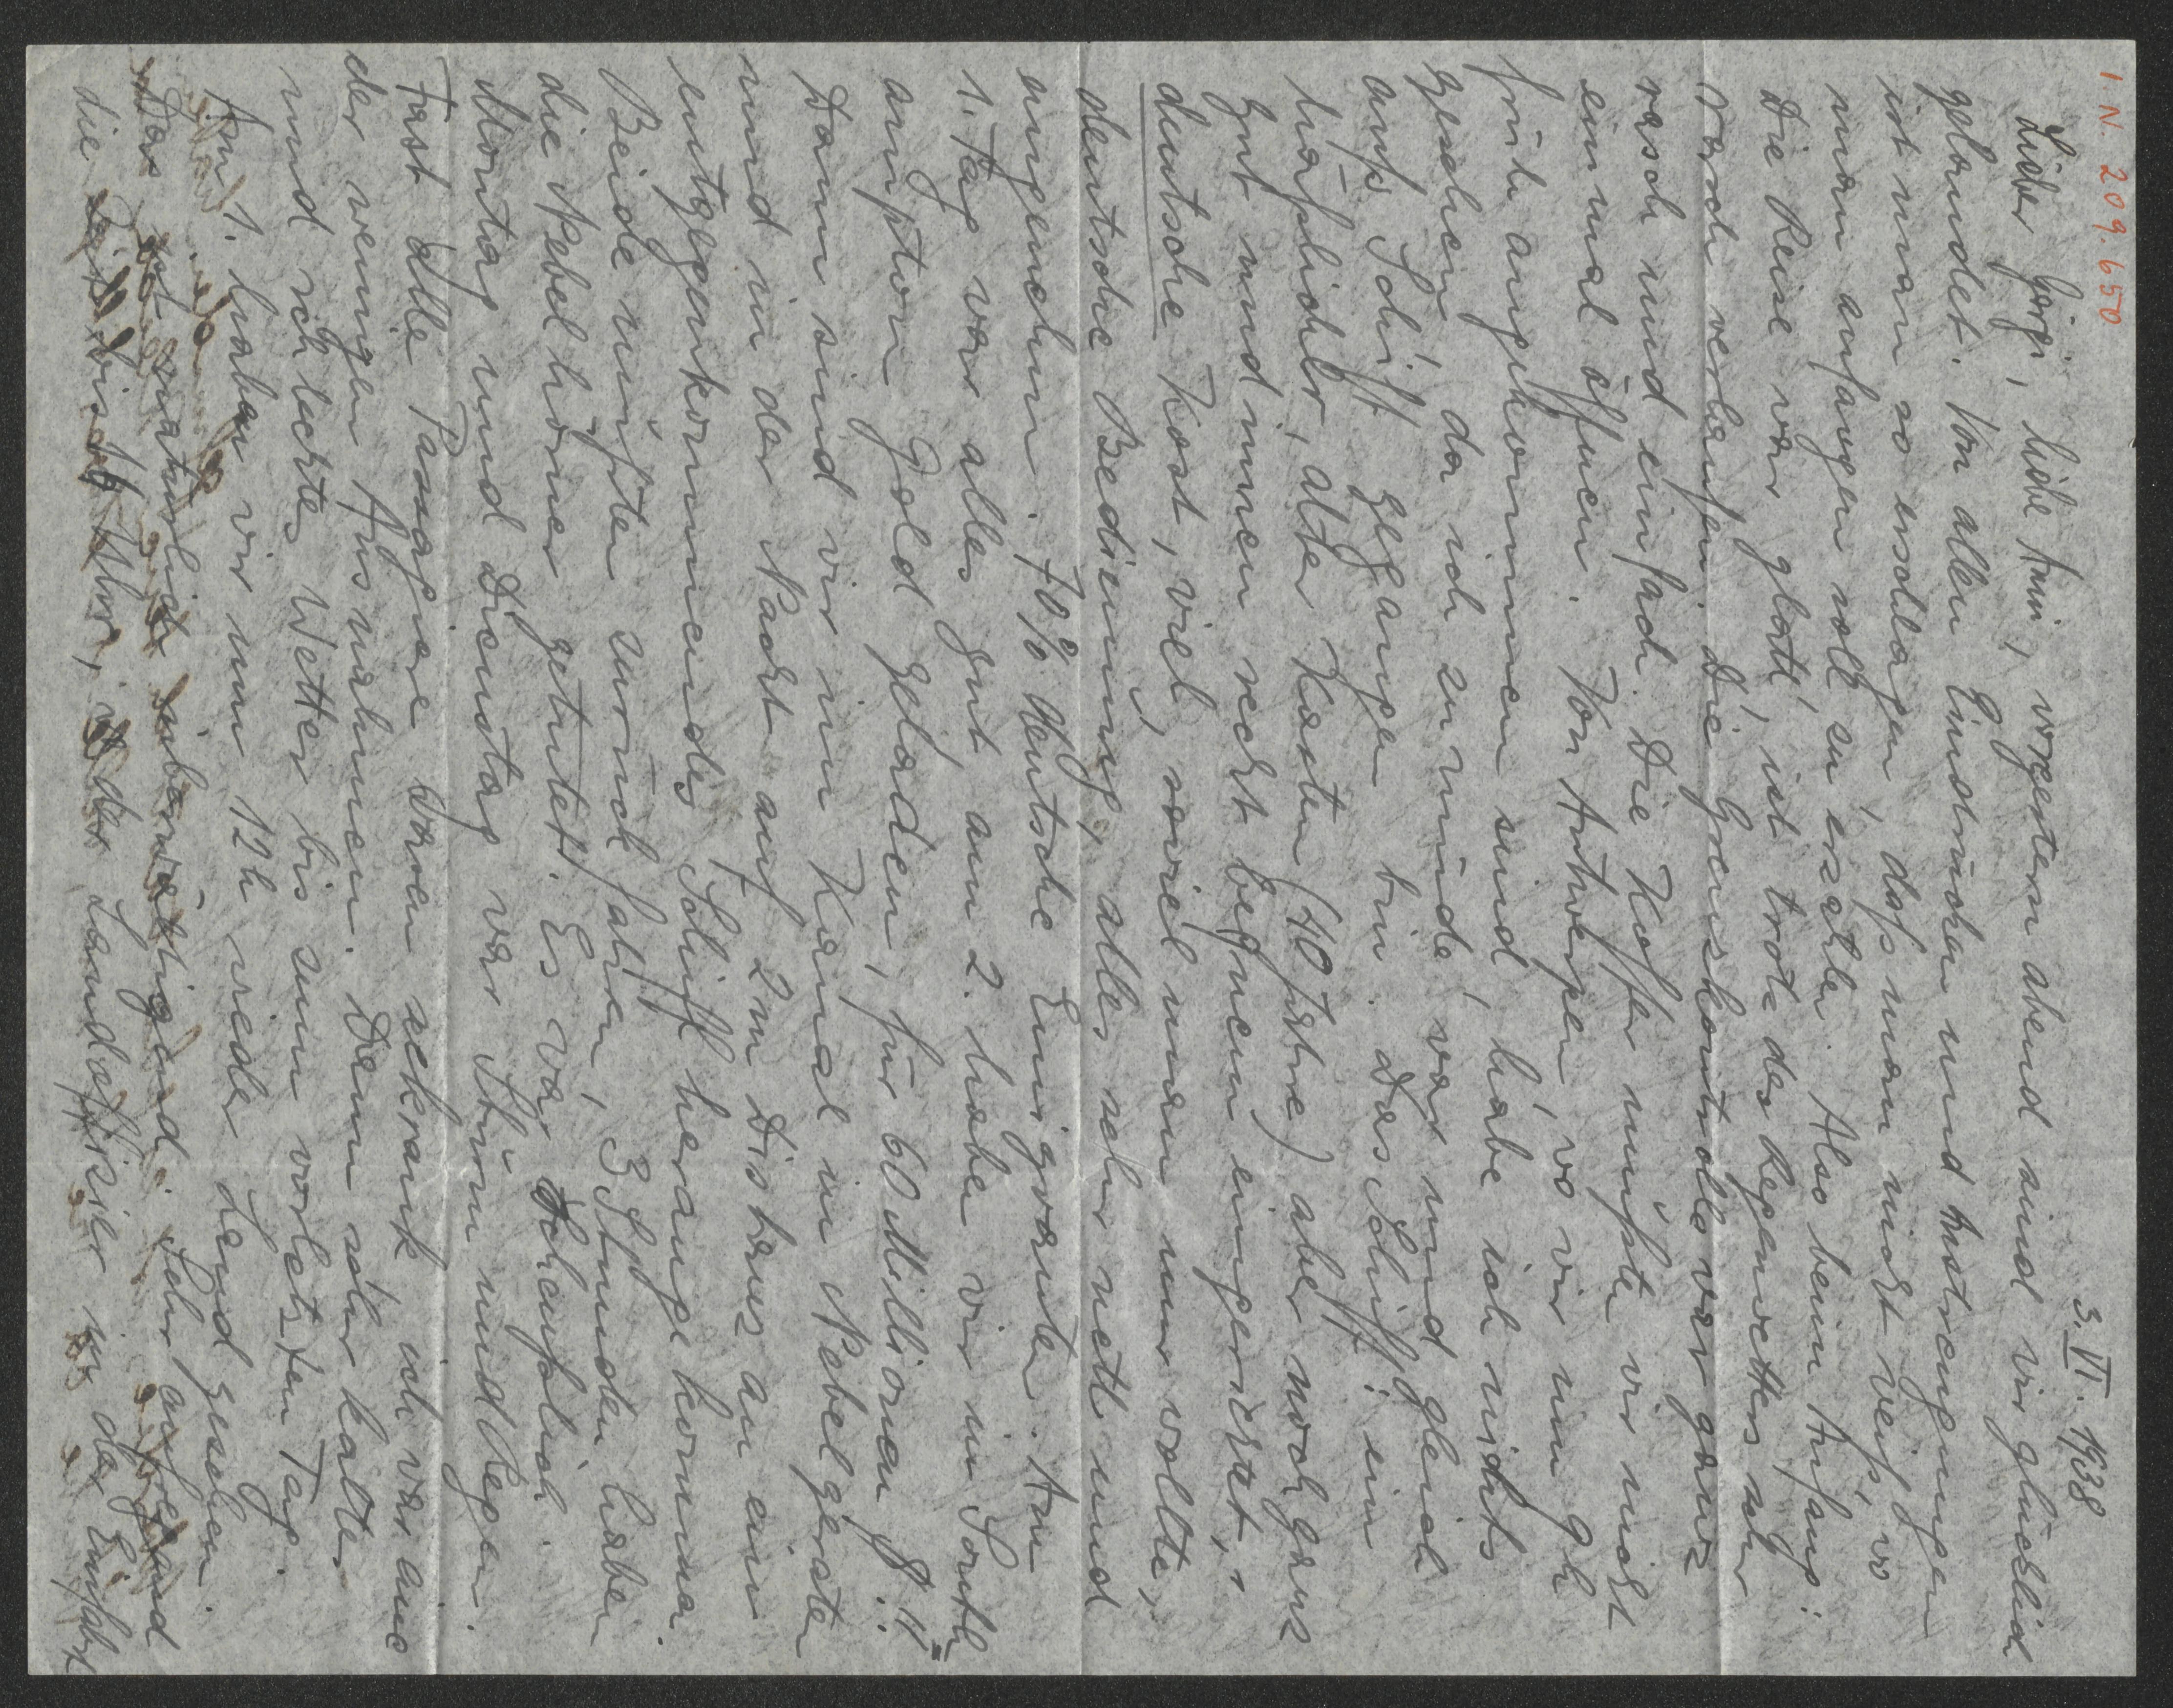 I N. 209.650
3. VI. 1938
Lieber Görgi, liebe Anni, vorgestern abend sind wir glücklich
gelandet. Von allen Eindrücken und Anstrengungen
ist man so erschlagen, daß man nicht weiß, wo
man anfangen soll zu erzählen. Also beim Anfang:
Die Reise war glatt, ist trotz des Regenwetters sehr
rasch verlaufen. Die Grenzkontrolle war ganz
rasch und einfach. Die Koffer mußten wir nicht
einmal öffnen. Von Antwerpen, wo wir um 9h
früh angekommen sind, habe ich nichts
gesehen, da ich zu müde war und gleich
aufs Schiff gegangen bin. Das Schiff: ein
häßlicher, alter Kasten (40 Jahre) aber noch ganz
gut und innen recht bequem eingerichtet,
deutsche Kost, viel, soviel man nur wollte,
deutsche Bedienung, alles sehr nett und
angenehm. 70% deutsche Emigranten. Am
1. Tag war alles gut, am 2. haben wir in South=
ampton Gold geladen, für 60 Millionen $!!
Dann sind wir im Kanal in Nebel geraten
und in der Nacht auf 2 m Distanz an ein
entgegenkommendes Schiff herangekommen.
Beide mußten zurückfahren, 3 Stunden haben
die Nebelhörner getutet. Es war scheußlich.
Montag und Dienstag war Sturm und Regen.
Fast alle Passagiere waren seekrank, ich war eine
der wenigen Ausnahmen. Dann sehr kaltes
und schlechtes Wetter bis zum vorletzten Tag.
Am 1. haben wir um 12h wieder Land gesehen.
Das ist natürlich überwältigend. Sehr aufregend
die Zeit bis Uhr, der Landoffizier in der Einfahrt